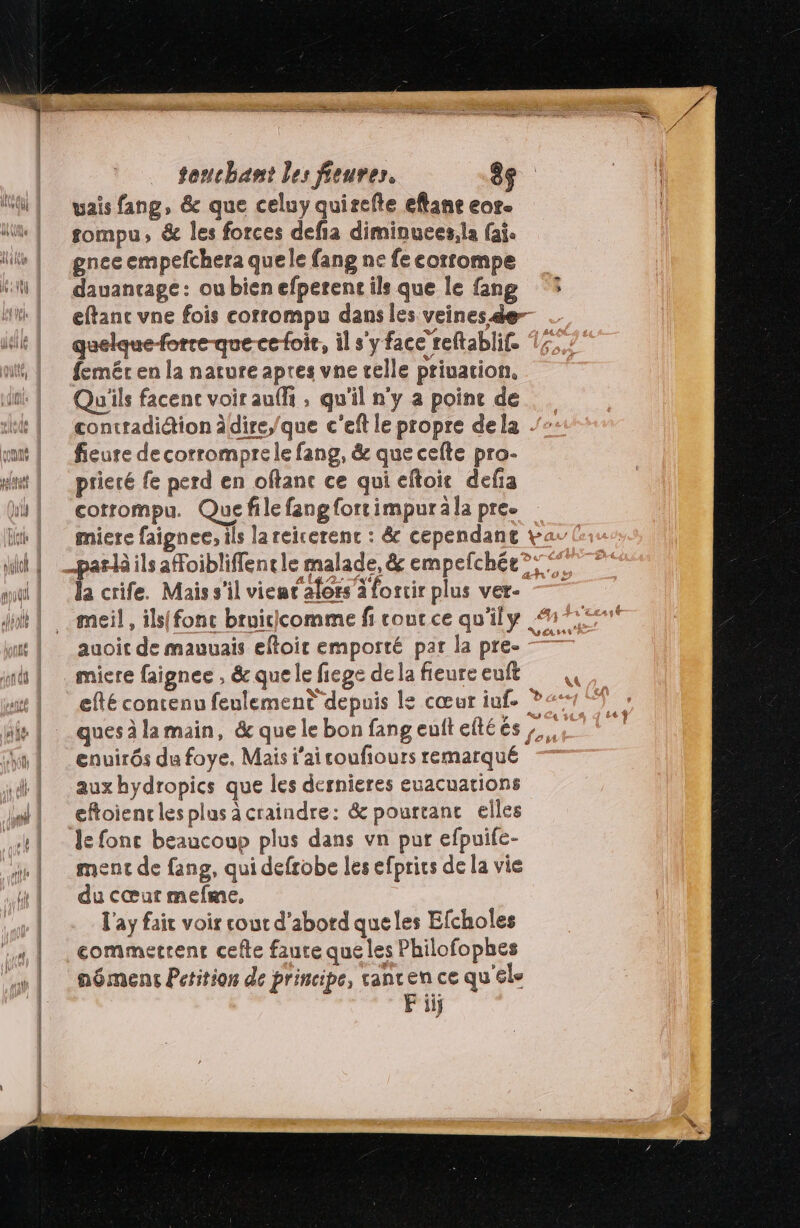 touchant les fieures. 85
uais ſang, & que celuy qui reſte eſtant cor-
rompu, & les forces deſia diminuees, la ſai-
gnee empeſchera que le ſang ne ſe corrompe
dauantage: ou bien eſperent ils que le ſang
eſtant vne fois corrompu dans les veines de
quelque ſorte que ce ſoit, il s'y face reſtabliſ-
ſemét en la nature apres vne telle priuation.
Qu'ils facent voir auſſi, qu'il n'y a point de
contradiction à dire, que c'eſt le propre de la
fieure de corrompre le ſang, & que ceſte pro-
prieté ſe perd en oſtant ce qui eſtoit deſia
corrompu. Que ſi le ſang ſort impur à la pre-
miere ſaignee, ils la reiterent : & cependant
par là ils affoibliſſent le malade, & empeſchét
la criſe. Mais s'il vient alors à ſortir plus ver-
meil, ils font bruit comme ſi tout ce qu'il y
auoit de mauuais eſtoit emporté par la pre-
miere ſaignee, & que le ſiege de la fieure euſt
eſté contenu ſeulement depuis le cœur iuſ-
ques à la main, & que le bon ſang euſt eſté és
enuirós du foye. Mais i'ai touſiours remarqué
aux hydropics que les dernieres euacuations
eſtoient les plus à craindre: & pourtant elles
le ſont beaucoup plus dans vn pur eſpuiſe-
ment de ſang, qui deſrobe les eſprits de la vie
du cœur meſme.
I'ay fait voir tout d'abord que les Eſcholes
commettent ceſte faute que les Philoſophes
nóment Petition de principe, tant en ce qu'el-
F iij